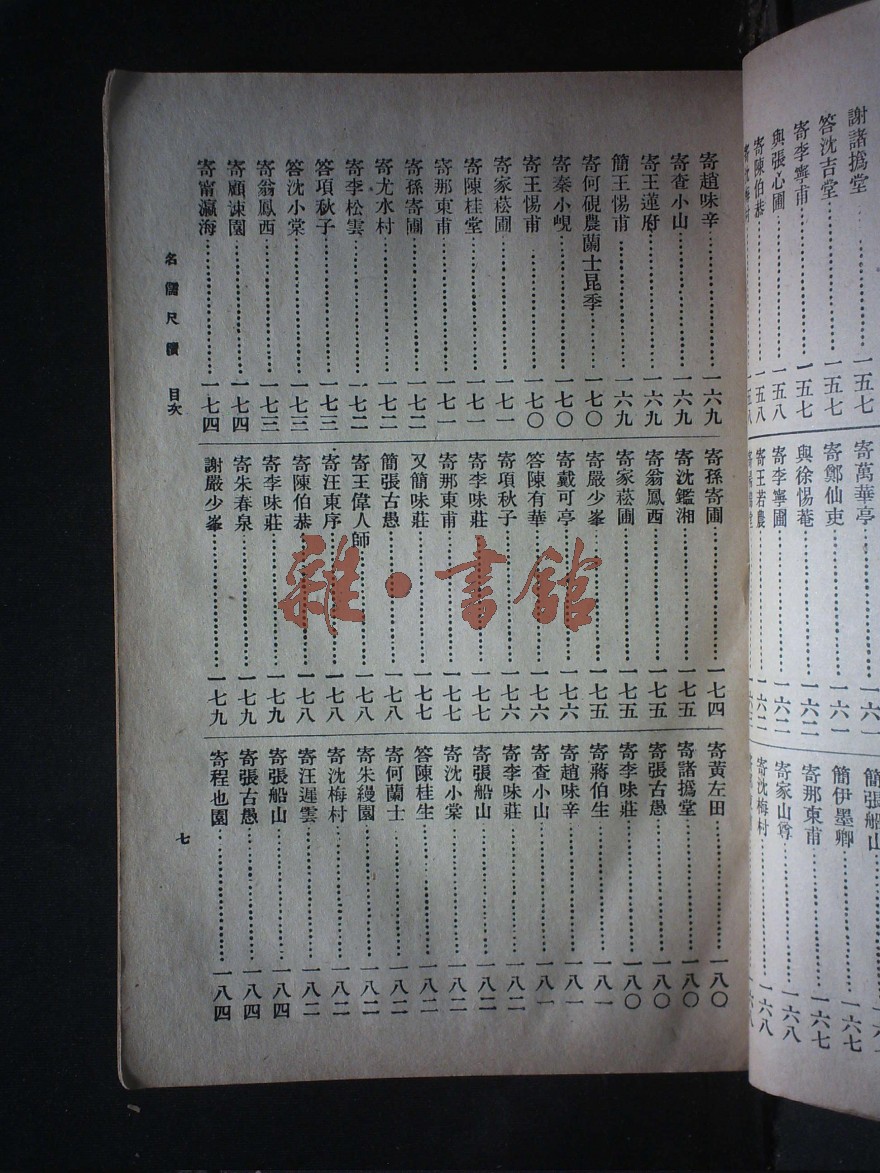 寄趙味辛……一六九
寄查小山……一六九
寄王蓮府……一六九
簡王惕甫……一六九
寄何硯農蘭士昆季……一七〇
寄秦小峴……一七〇
寄王惕甫……一七〇
寄家菘圃……一七一
寄陳桂堂……一七一
寄那東甫……一七一
寄孫寄圃……一七二
寄尤水村……一七二
寄李松雲……一七二
答項秋子……一七三
答沈小棠……一七三
寄翁鳳西……一七三
寄顧涑園……一七四
寄甯瀛海……一七四
寄孫寄圃……一七四
寄沈鑑湘……一七五
寄翁鳳西……一七五
寄家菘圃……一七五
寄嚴少峯……一七五
寄戴可亭……一七六
答陳有華……一七六
寄項秋子……一七六
寄李味莊……一七七
寄那東甫……一七七
又簡味莊……一七七
簡張古愚……一七八
寄王偉人師……一七八
寄汪東序……一七八
寄陳伯恭……一七八
寄李味莊……一七九
寄朱春泉……一七九
謝嚴少峯……一七九
寄黃左田……一八〇
寄諸撝堂……一八〇
寄張古愚……一八〇
寄李味莊……一八〇
寄蔣伯生……一八一
寄趙味辛……一八一
寄查小山……一八一
寄李味莊……一八二
寄張船山……一八二
寄沈小棠……一八二
答陳桂生……一八二
寄何蘭士……一八二
寄朱縵園……一八二
寄沈梅村……一八二
寄汪遲雲……一八二
寄張船山……一八四
寄張古愚……一八四
寄程也園……一八四
名儒尺牘 目次
七
雜·書館
謝諸撝堂……一五七
答沈吉堂……一五七
寄李寧甫……一五七
與張心圃……一五八
寄陳伯恭……一五八
寄萬華亭……一六一
寄鄭仙吏……一六一
與徐惕菴……一六二
寄李寧圃……一六二
寄王若農……一六二
簡張船山
簡伊墨卿……一六七
寄那東甫……一六七
寄家山尊……一六八
寄沈梅村……一六八